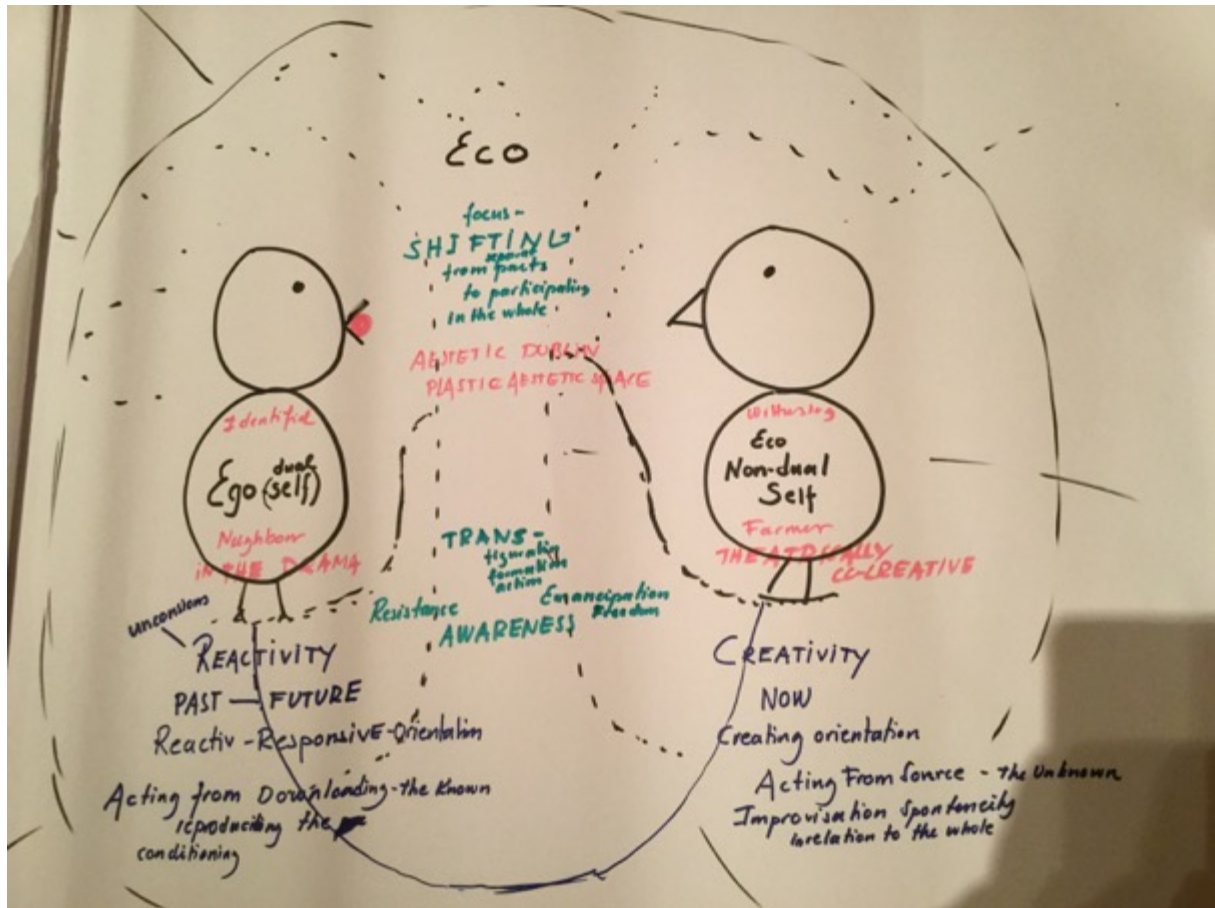 Eco
focus -
SHIFTING
separat
from parts
to participating
in the whole
AESTETIC DUBLIN
PLASTIC AESTETIC SPACE
Identified
Ego (dual self)
Neighbour
IN THE DRAMA
Witnessing
Eco
Non-dual
Self
Farmer
THEATRICALLY
CO-CREATIVE
TRANS -
figuration
formation
action
Resistance
Emancipation
Freedom
AWARENESS
unconsious
REACTIVITY
PAST — FUTURE
Reactiv - Responsive - Orientation
Acting from Downloading - the Known
reproducing the
conditioning
CREATIVITY
NOW
Creating orientation
Acting From Source - The Unknown
Improvisation spontencity
in relation to the whole